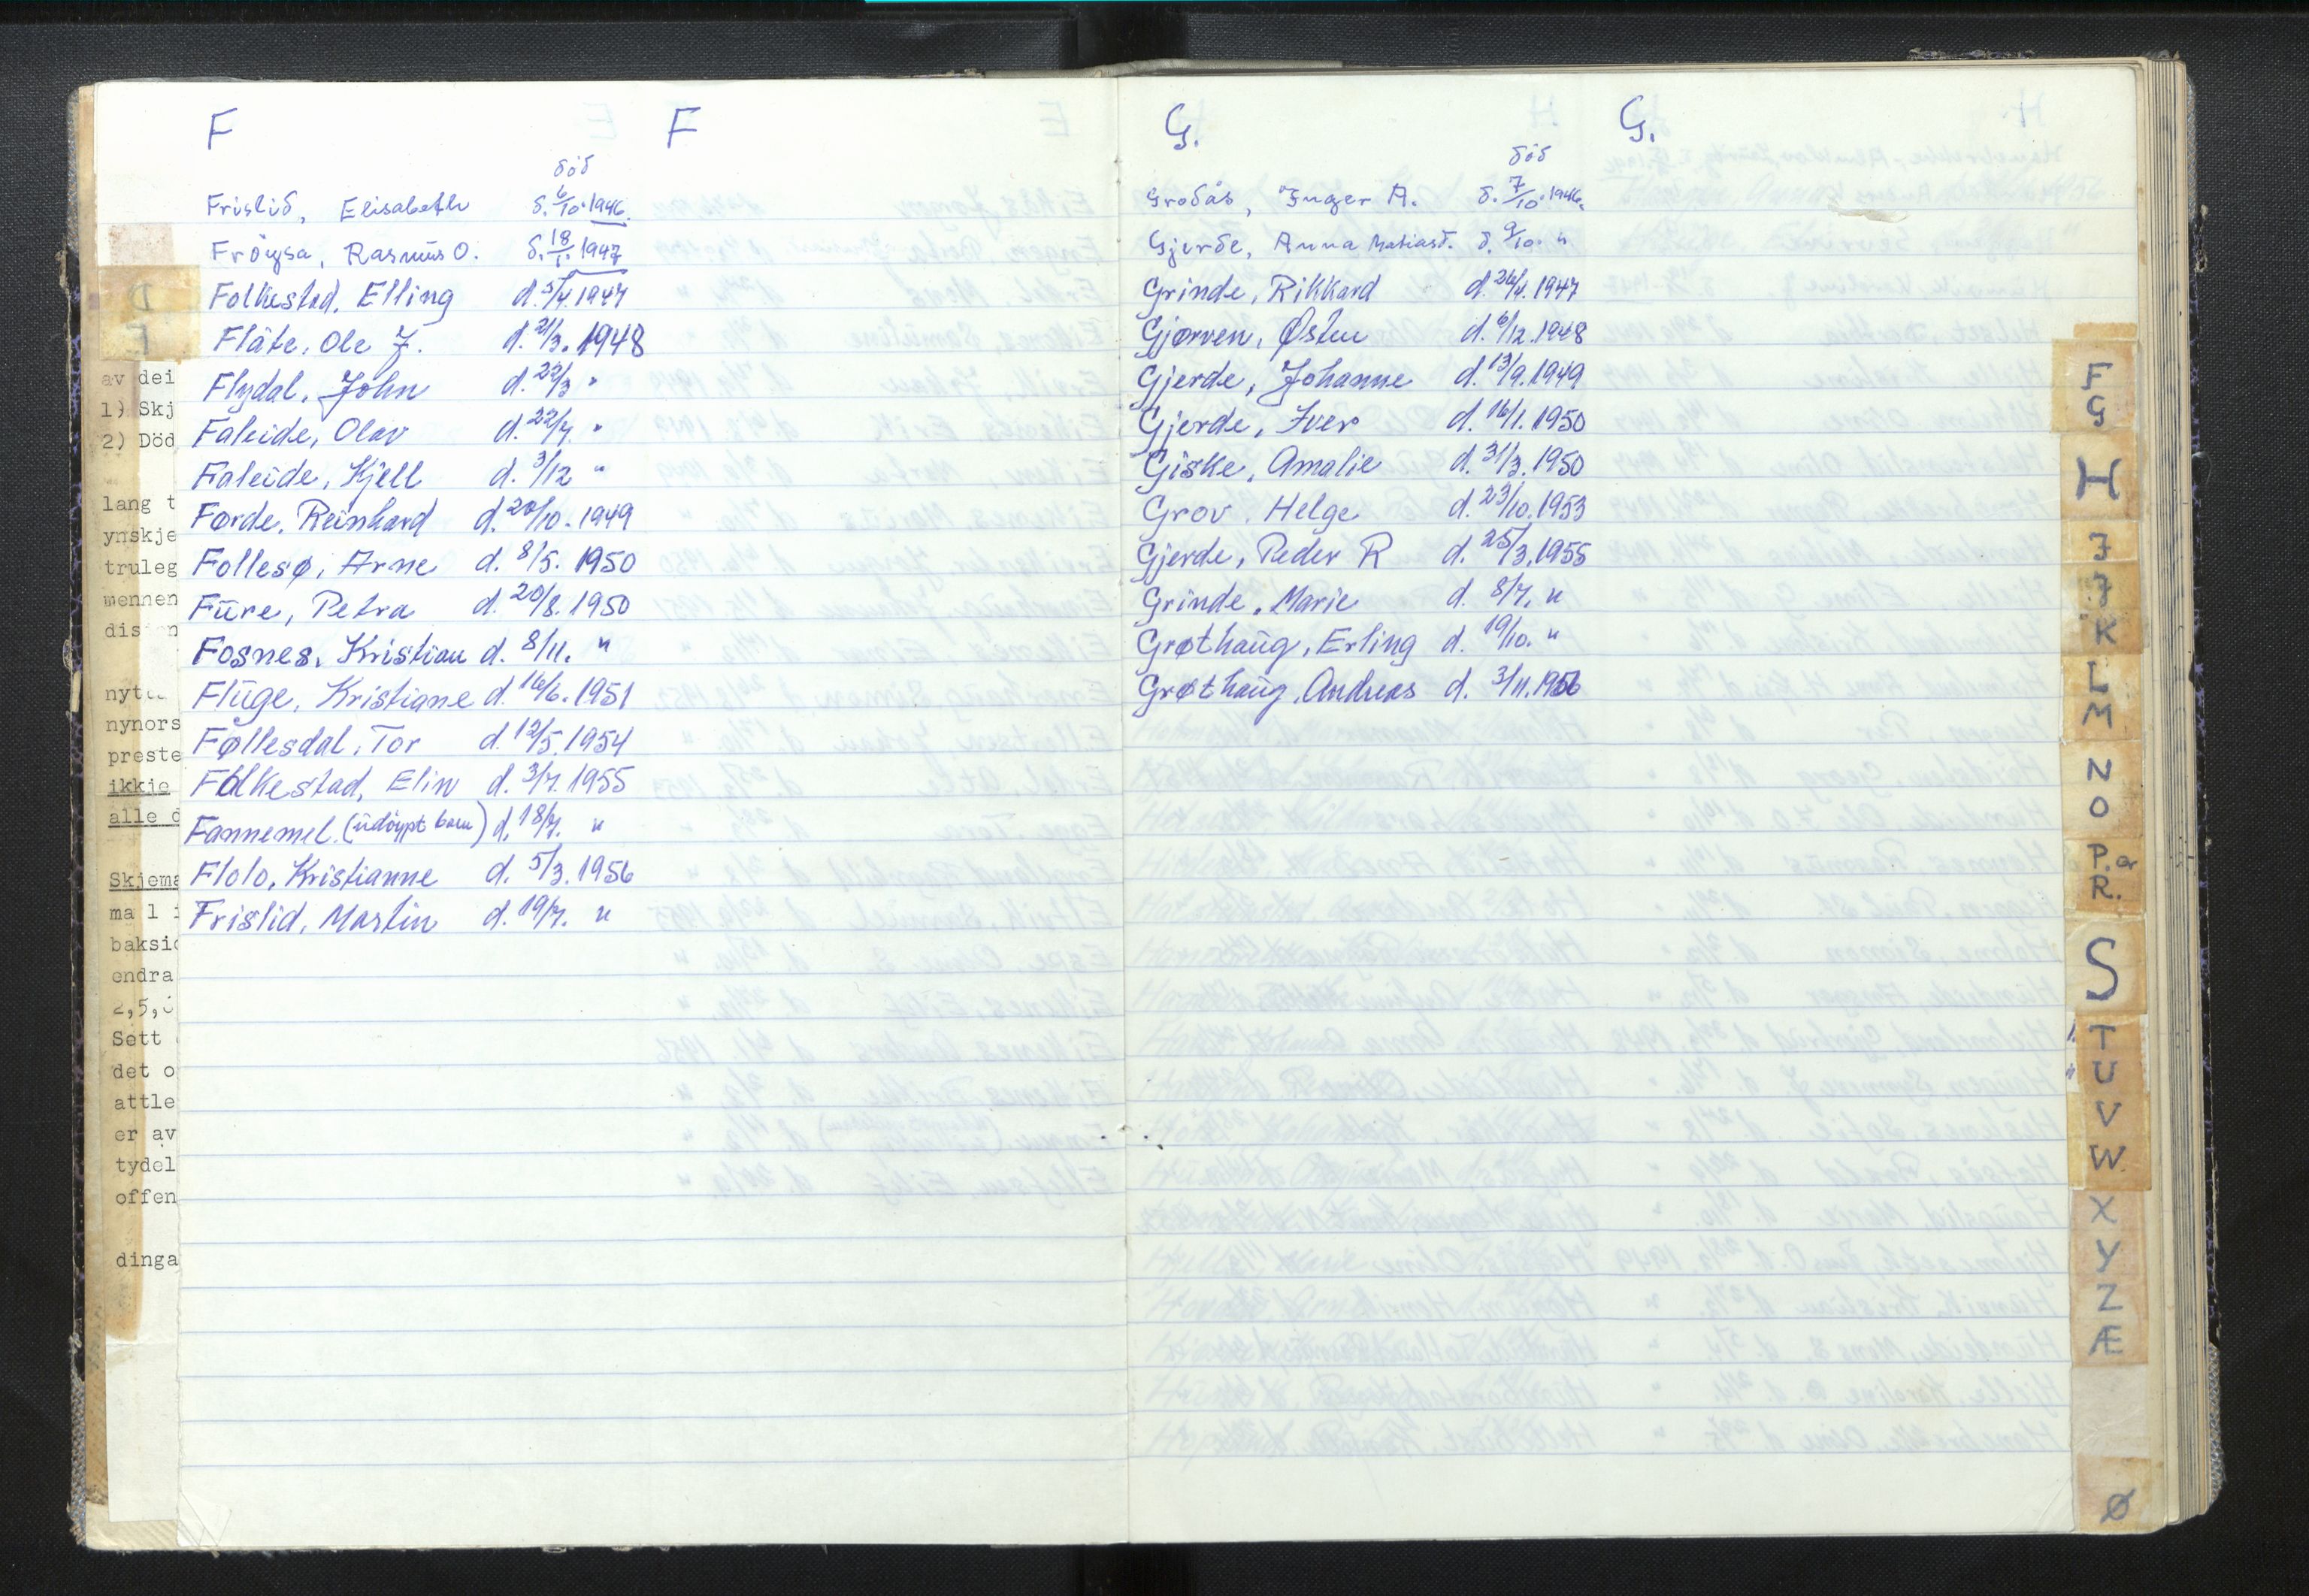 F
F
död
Frislid, Elisabeth d. 6/10. 1946.
Fröysa, Rasmus O. d. 18/1. 1947
Folkestad, Elling d. 5/4. 1947
Flåte, Ole J. d. 21/3. 1948
Flydal, John d. 22/3 "
Faleide, Olav d. 22/7. "
Faleide, Kjell d. 3/12 "
Førde, Reinhard d. 20/10. 1949
Follesø, Arne d. 8/5. 1950
Fure, Petra d. 20/8. 1950
Fosnes, Kristian d. 8/11. "
Fluge, Kristiane d. 16/6. 1951
Føllesdal, Tor d. 12/5. 1954
Folkestad, Elin d. 3/7. 1955
Fannemel. (udöypt barn) d. 18/7. "
Flolo, Kristianne d. 5/3. 1956
Frislid, Martin d. 19/7. "
av dei
1) Skj
2) Död
lang t
ynskje
truleg
mennen
nynors
preste
ikkje
alle d
Skjema
baksid
endra
Sett
det o
attle
er av
tydel
offen
dinga
G.
G.
död
Grodås, Inger A. d. 7/10. 1946.
Gjerde, Anna Matiasd. d. 9/10. "
Grinde, Rikkard d. 26/4. 1947
Gjørven, Østen d. 6/12. 1948
Gjerde, Johanne d. 13/9. 1949
Gjerde, Iver d. 16/1. 1950
Giske, Amalie d. 31/3. 1950
Grov, Helge d. 23/10. 1953
Gjerde, Peder R d. 25/3. 1955
Grinde, Marie d. 8/7. "
Grøthaug, Erling d. 19/10. "
Grøthaug, Andreas d. 3/11. 1956
F
G
H
I
J
K
L
M
N
O
P. or
R.
S
T
U
V
W
X
Y
Z
Æ
Ø